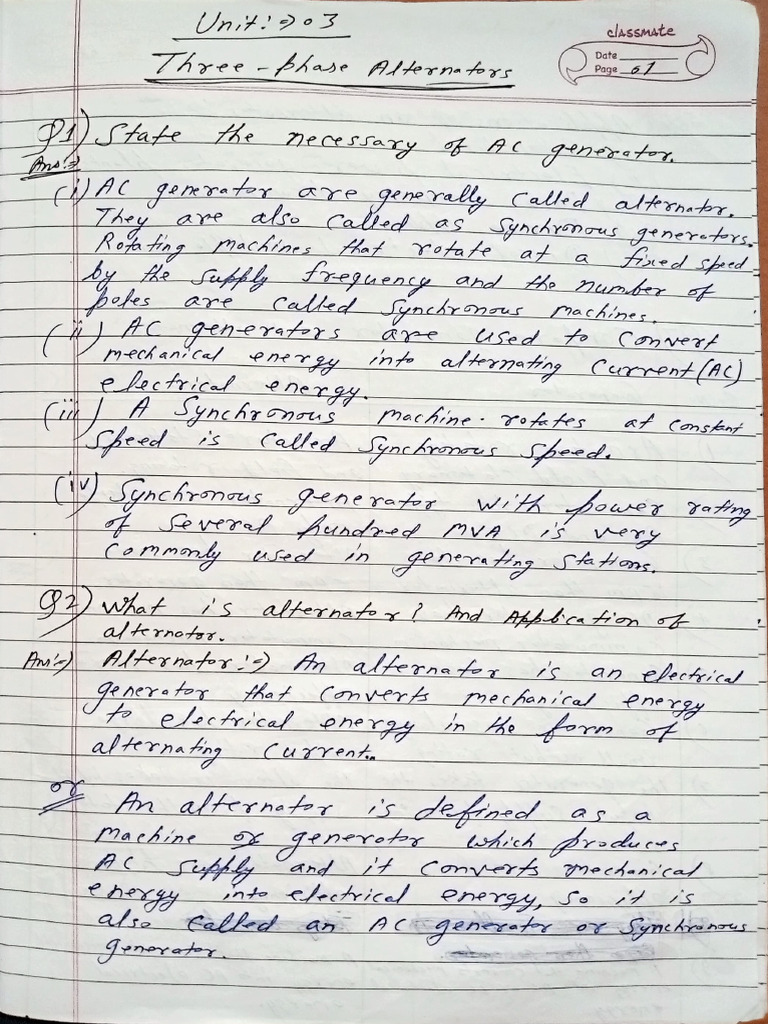 Unit:⇒ 03
Three-phase Alternators
classmate
Date
Page 01
Q1) State the necessary of AC generator.
Ans:⇒
(i) AC generator are generally called alternator.
They are also called as synchronous generators.
Rotating machines that rotate at a fixed speed
by the supply frequency and the number of
poles are called synchronous machines.
(ii) AC generators are used to convert
mechanical energy into alternating current (AC)
electrical energy.
(iii) A synchronous machine rotates at constant
speed is called synchronous speed.
(iv) Synchronous generator with power rating
of several hundred MVA is very
commonly used in generating stations.
Q2) What is alternator? And Application of
alternator.
Ans:⇒ Alternator:⇒ An alternator is an electrical
generator that converts mechanical energy
to electrical energy in the form of
alternating current.
or An alternator is defined as a
machine or generator which produces
AC supply and it converts mechanical
energy into electrical energy, so it is
also called an AC generator or synchronous
generator.